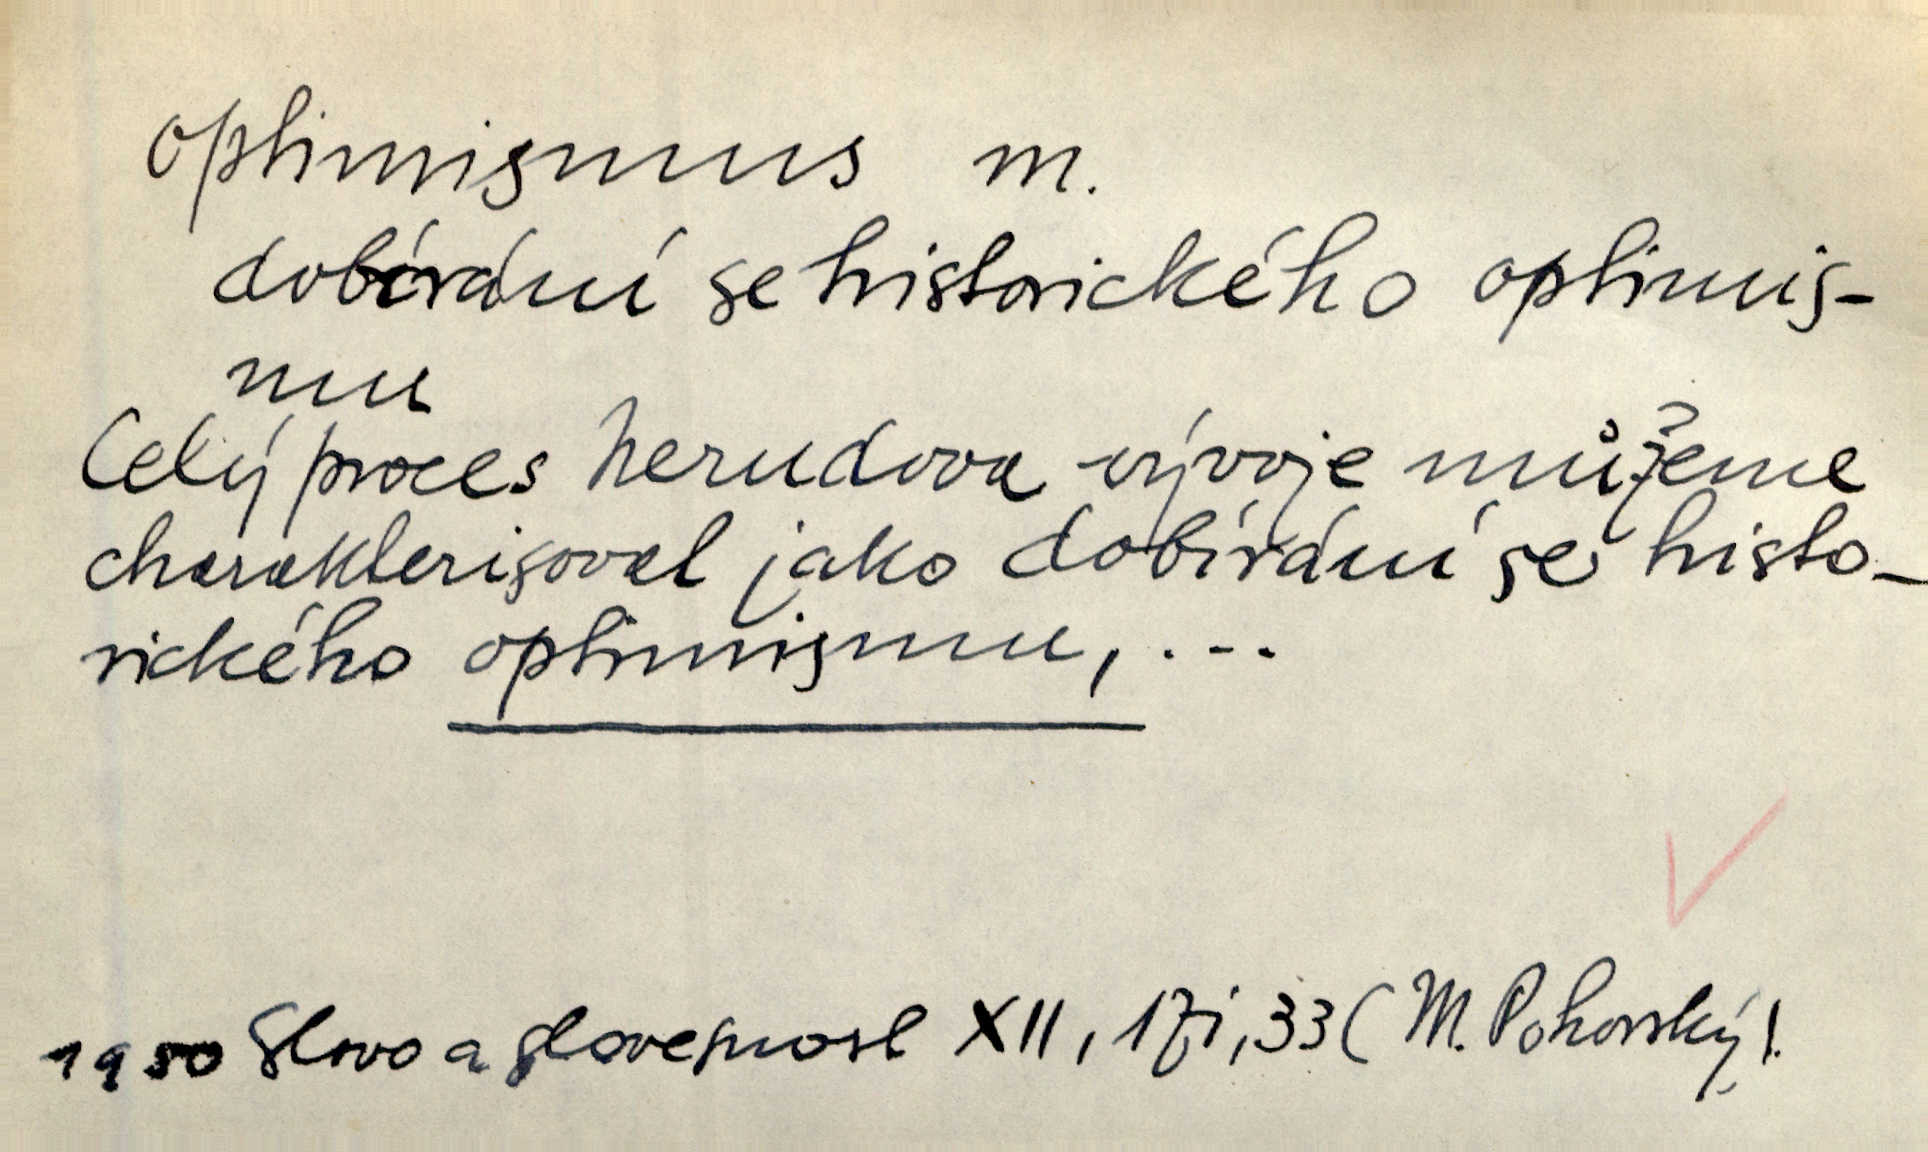 optimismus m.
dobírání se historického optimis-
mu
Celý proces Nerudova vývoje můžeme
charakterisovat jako dobírání se histo-
rického optimismu, ...
1950 Slovo a slovesnost XII, 1, 33 (M. Pohorský).